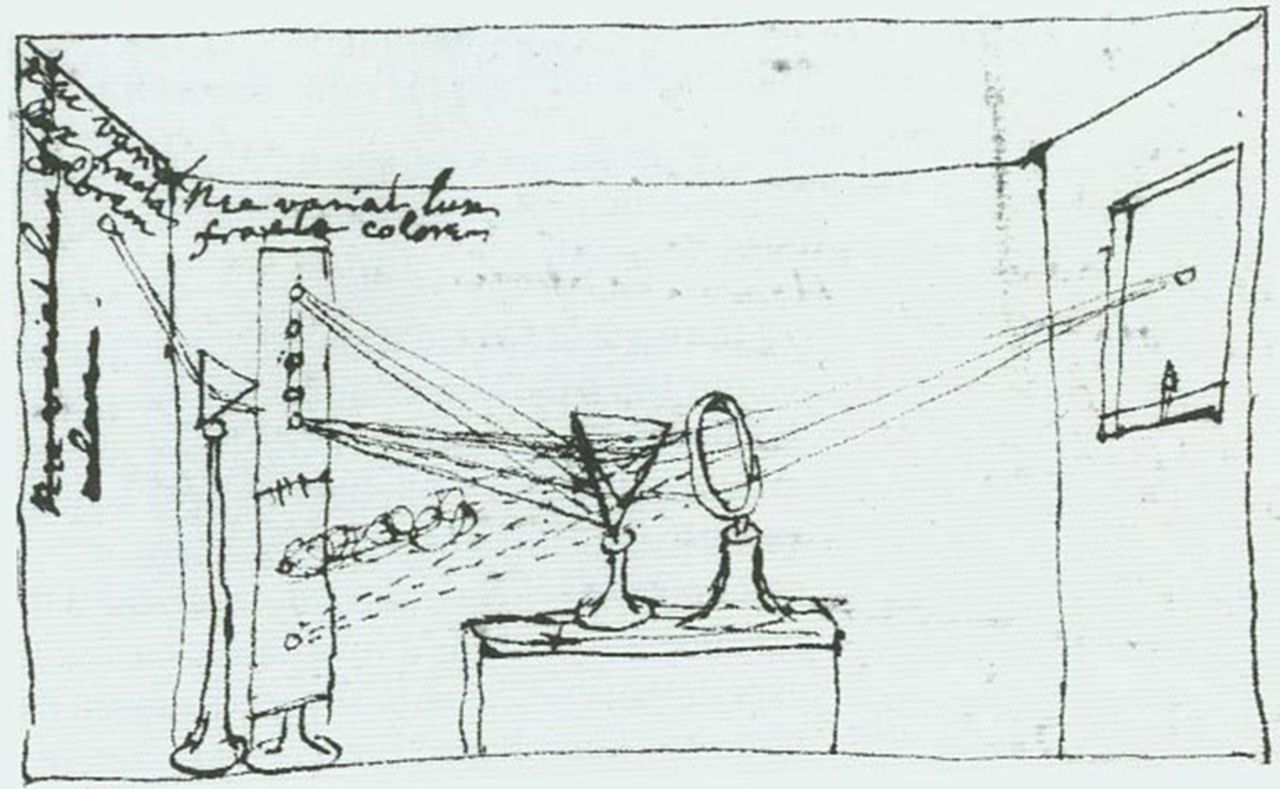 Nec variat
lux fracta
colorem
Nec variat lux
fracta colorem
Nec variat lux